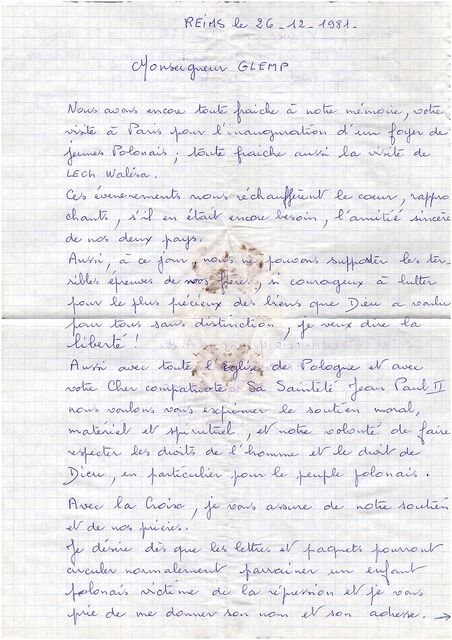 REIMS le 26-12-1981-
Monseigneur GLEMP
Nous avons encore toute fraiche à notre mémoire, votre
visite à Paris pour l'inauguration d'un foyer de
jeunes Polonais ; toute fraiche aussi la visite de
LECH Walésa.
Ces évenements nous réchauffèrent le coeur, rappro
chants, s'il en était encore besoin, l'amitié sincère
de nos deux pays.
Aussi, à ce jour, nous ne pouvons supporter les ter-
ribles épreuves de nos frères, si courageux à lutter
pour le plus précieux des biens que Dieu a voulu
pour tous sans distinction, je veux dire la
liberté !
Aussi avec toute l'Eglise de Pologne et avec
votre Cher compatriote Sa Sainteté Jean Paul II
nous voulons vous exprimer le soutien moral,
matériel et spirituel, et notre volonté de faire
respecter les droits de l'homme et le droit de
Dieu, en particulier pour le peuple polonais.
Avec la Croix, je vous assure de notre soutien
et de nos prières.
Je désire dès que les lettres et paquets pourront
circuler normalement parrainer un enfant
polonais victime de la répression et je vous
prie de me donner son nom et son adresse. →